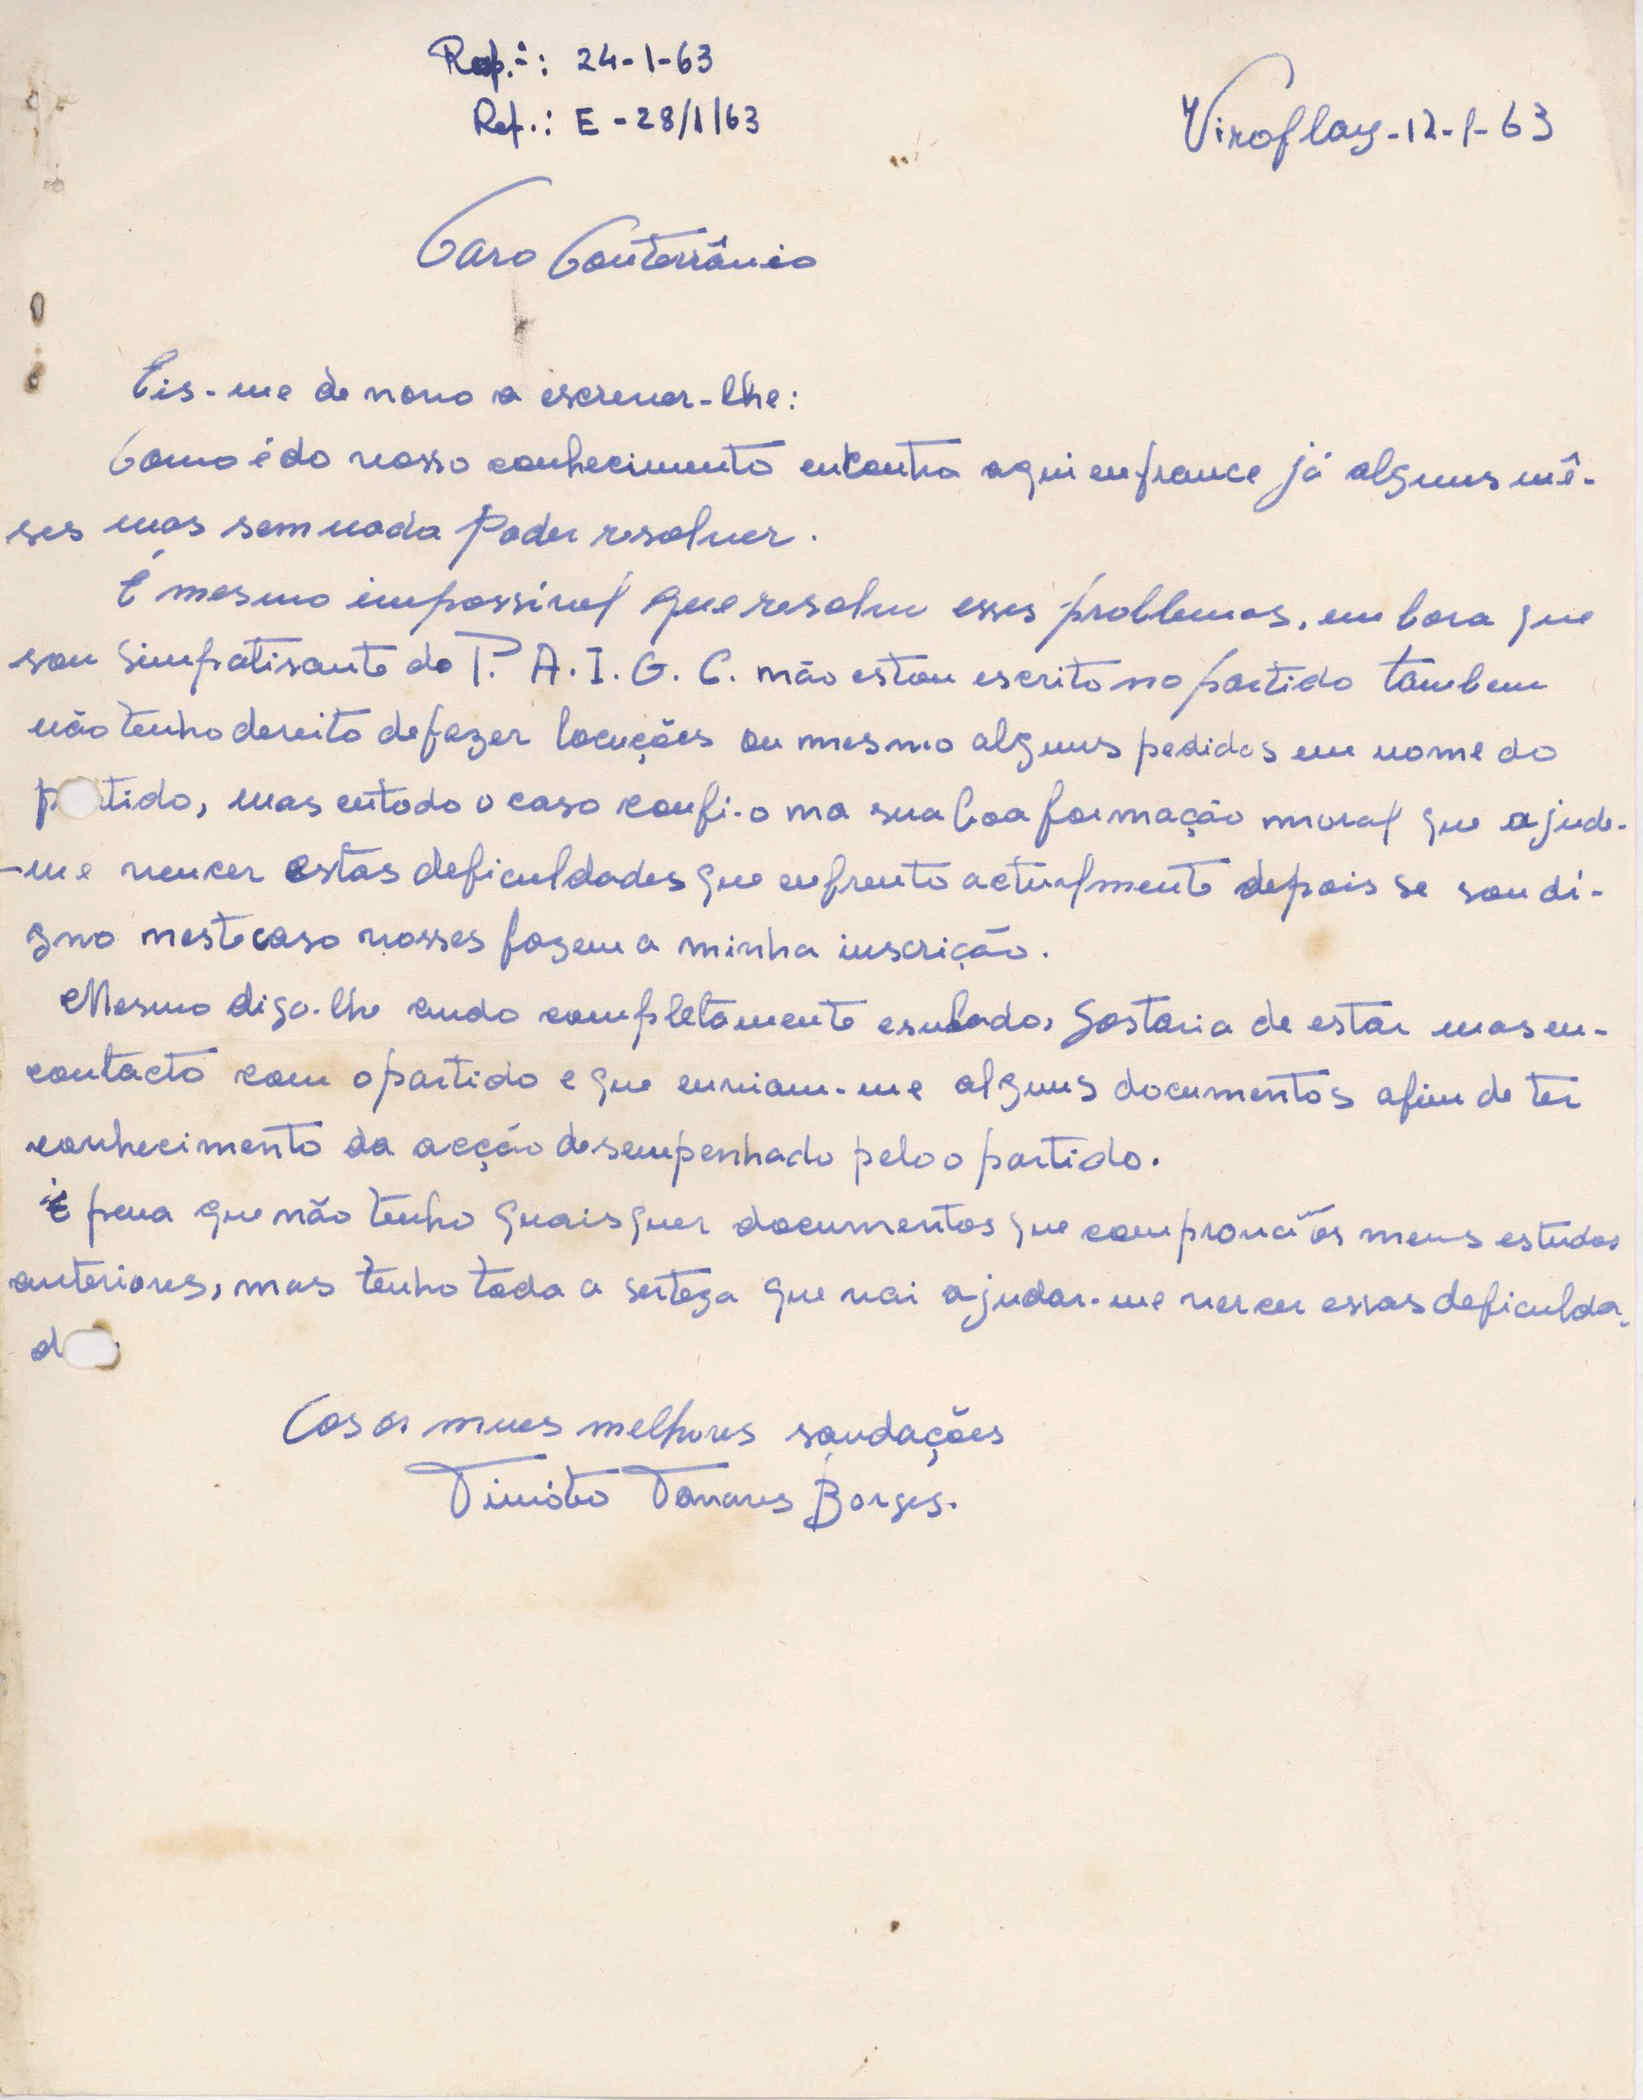 Resp.: 24-1-63
Ref.: E-28/1/63
Viroflay-12-1-63
Caro Conterrânio
Eis-me de novo a escrever-lhe:
Como é do vosso conhecimento encontra aqui en france já alguns mê-
ses mas sem nada poder resolver.
É mesmo impossivel que resolva esses problemas, embora que
sou simpatisante do P. A. I. G. C. não estou escrito no partido tambem
não tenho dereito de fazer locuções ou mesmo alguns pedidos em nome do
p tido, mas entodo o caso confi-o na sua boa formação moral que ajude-
-me vencer estas deficuldades que enfrento actualmente depois se sou di-
gno neste caso vosses fazem a minha inscrição.
Mesmo digo-lhe ando completamente isolado, gostaria de estar mas en-
contacto com o partido e que enviam-me alguns documentos afim de ter
conhecimento da acção desempenhado pelo o partido.
É pena que não tenho quaisquer documentos que comprova os meus estudos
anteriores, mas tenho toda a serteza que vai ajudar-me vercer essas deficulda-
d
Cos os mues melhores saudações
Timóteo Tavares Borges.